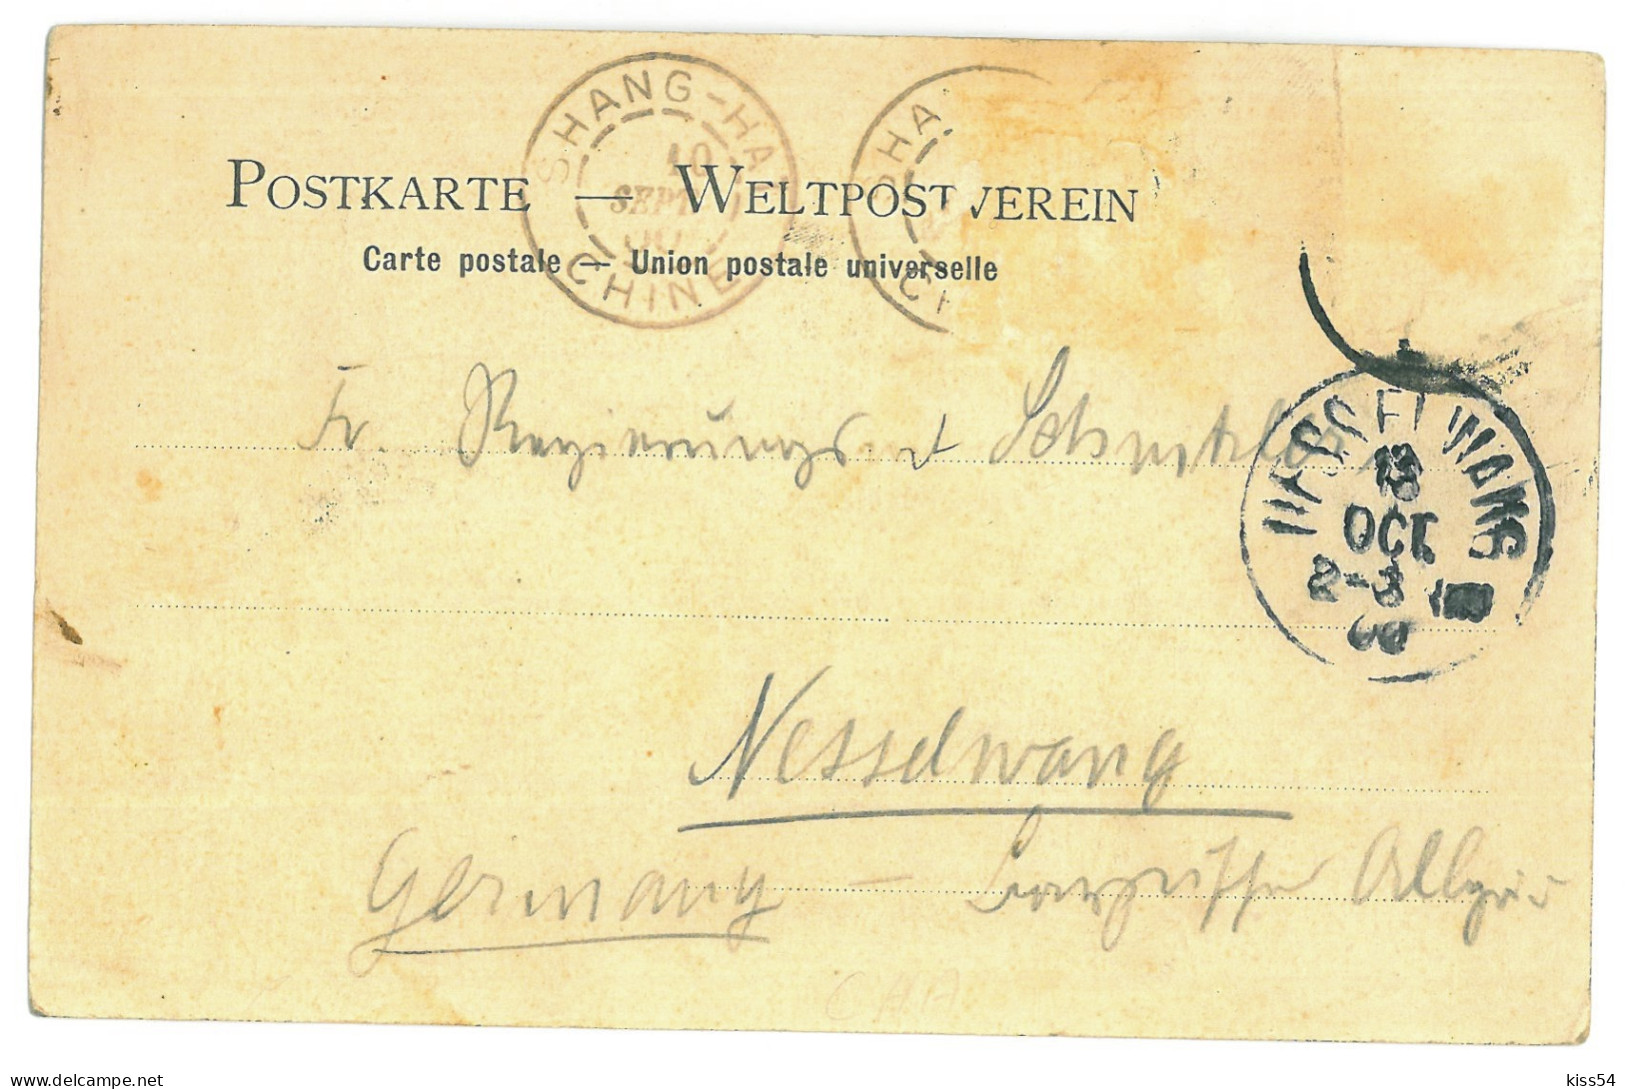 SHANG-HAI
10
SEPT
00
CHINE
SHA
CH
POSTKARTE — WELTPOSTVEREIN
Carte postale — Union postale universelle
Fr. Regierungsrat
NESSELWANG
13
OCT
2-3
00
Nesselwang
Germany — Allgäu
CHA
delcampe.net
kiss54